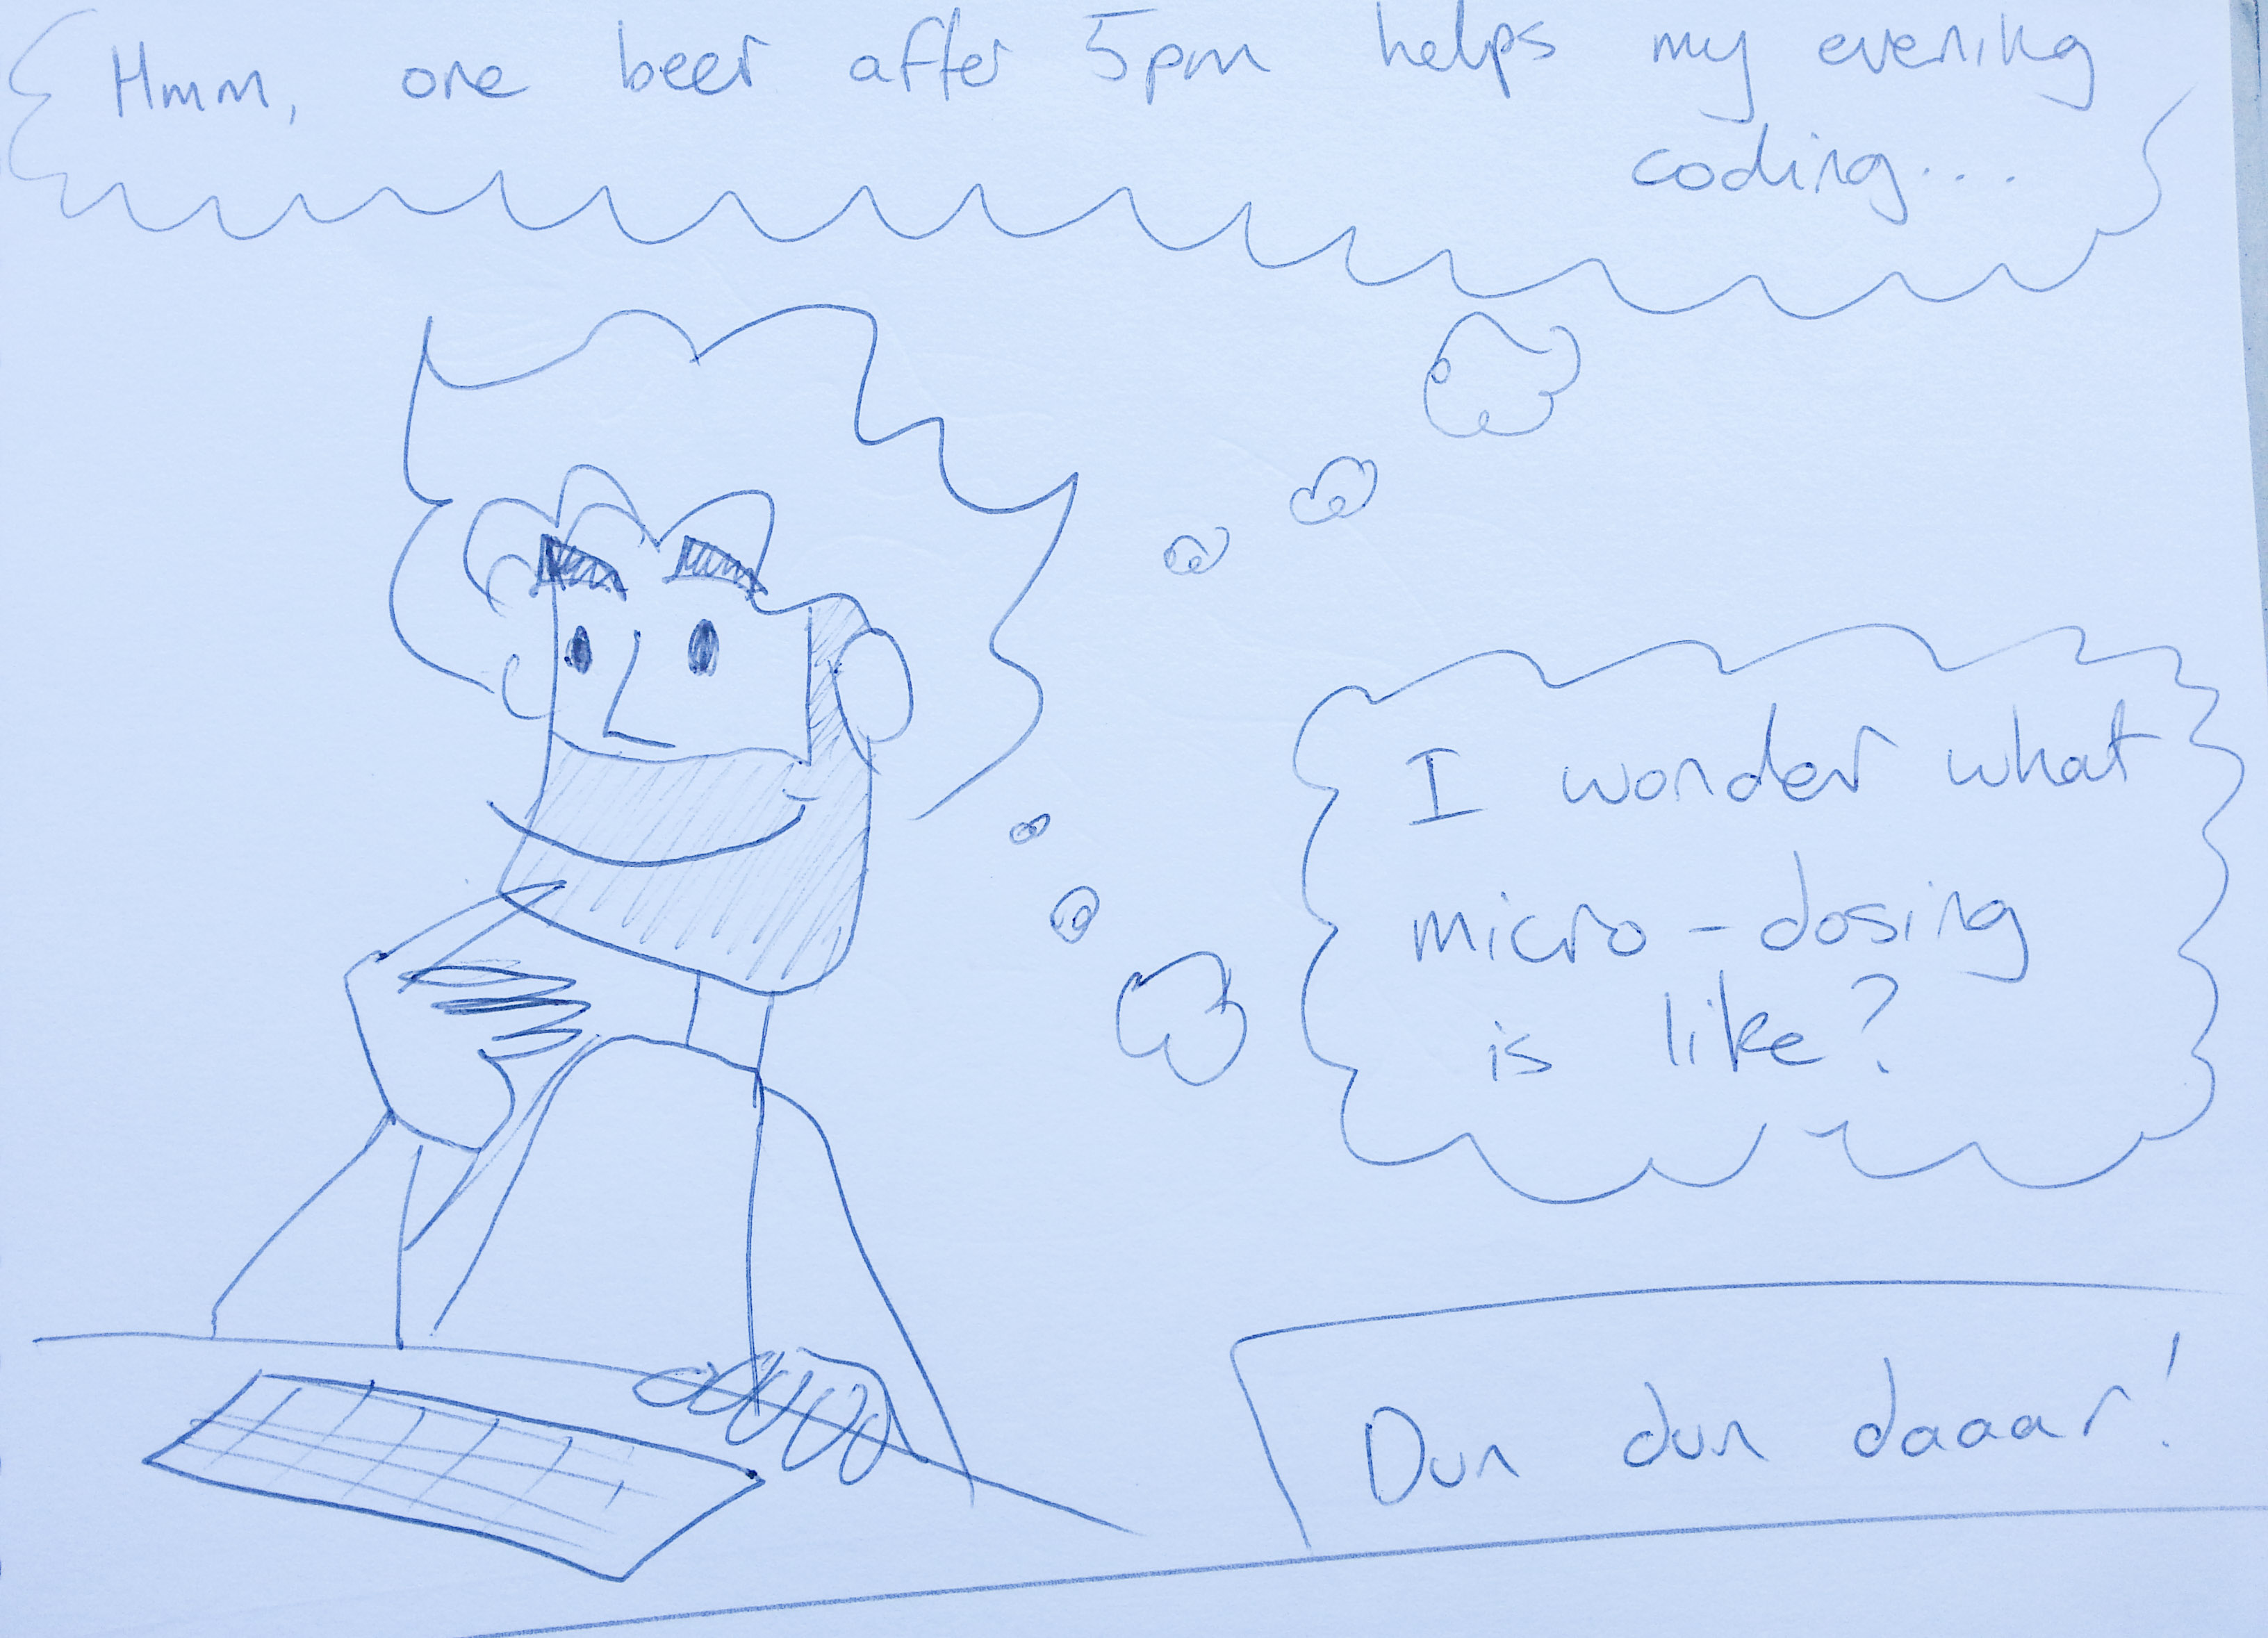 Hmm, one beer after 5pm helps my evening
coding...
I wonder what
micro-dosing
is like?
Dun dun daaar!